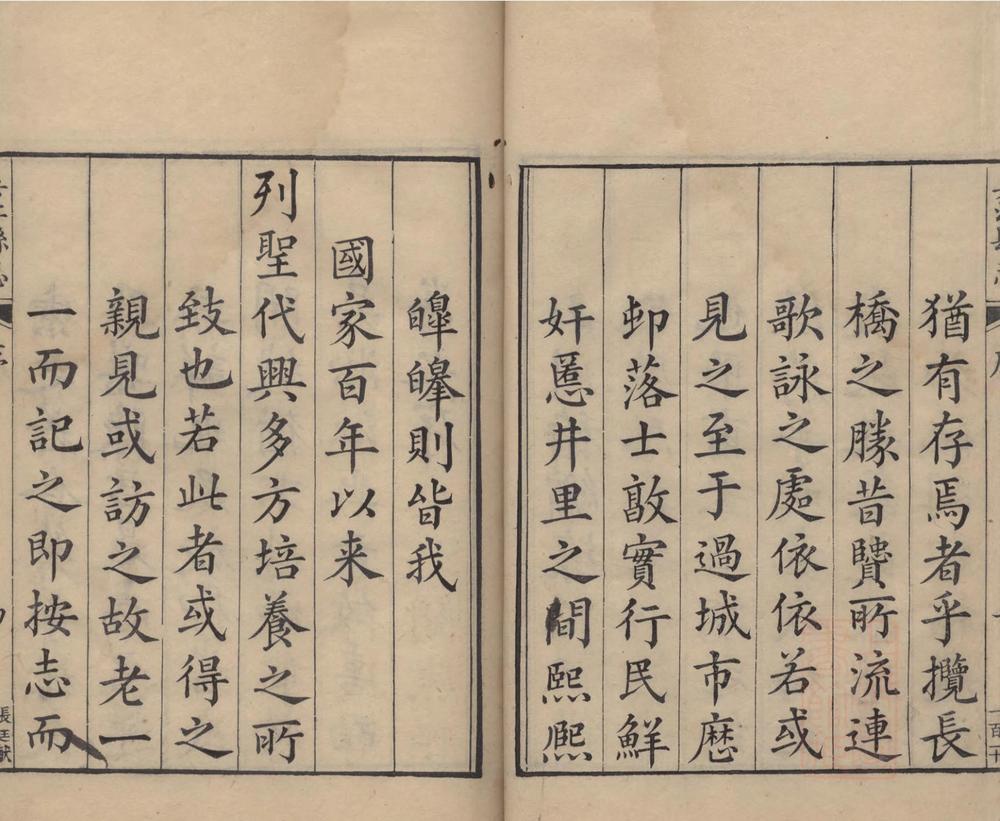 猶有存焉者乎攬長
橋之勝昔贒所流連
歌詠之處依依若或
見之至于過城市厯
邨落士敦實行民鮮
奸慝井里之間熙熙
皥皥則皆我
國家百年以来
列聖代興多方培養之所
致也若此者或得之
親見或訪之故老一
一而記之即按志而